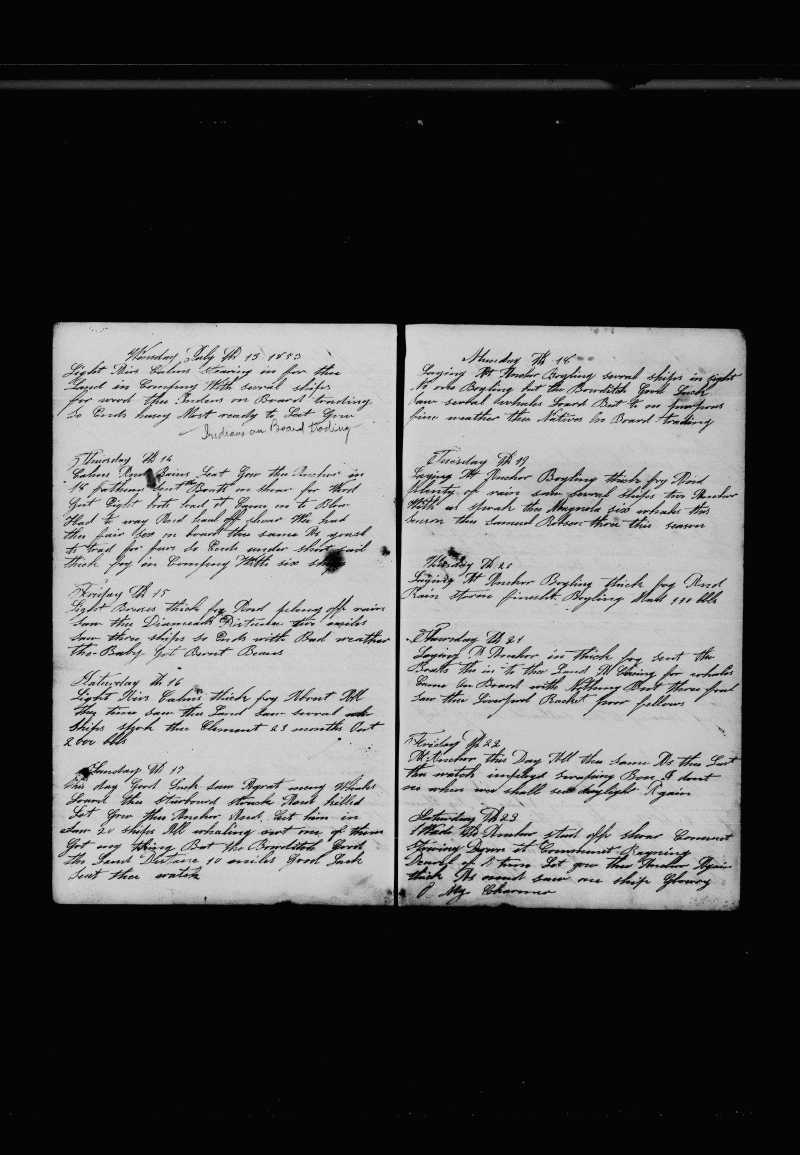 Wensday July th 13 1853
Light Airs Calms Staring in for the
Land in Company With sevral ships
for wood the Indens on Board trading
So Ends being Most ready to Let Gow
Indians on Board trading
Thursday th 14
Calms And Rains Leat Gow the Anchor in
14 fathems sent the Boats on shear for Wood
Got Eight bots load it Came on to Blow
Had to way And haul off shear We had
the fair sex on board the same As yousl
to trad for fun So Ends under short sail
thick fog in Company With six ships
Friday th 15
Light Breses thick fog And plenty off rain
Saw the Diameads Disttance two miles
Saw three ships so Ends with Bad weather
the Baby Got Bernt Beans
Satturday th 16
Light Airs Calms thick fog About All
the time saw the Land Saw sevral
Ships spok the Clement 23 months Out
2000 bbls
Sunday th 17
This day Good Luck saw Agrat meny Whales
Loard the Starbord struck And killed
Let Gow the Anchor And Cut him in
Saw 20 ships All whaling not one of them
Got eny thing But the Bowditch Good
the Land Distance 10 miles Good Luck
Sent the watch
Munday th 18
Laying At Anchor Boyling sevral ships in sight
No one Boyling but the Bowditch Good Luck
saw sevral whales Loard But to no purpous
fine weather the Natives On Board trading
Tuesday th 19
Laying At Anchor Boyling thick fog And
Plenty of rain saw sevral ships two Anchor
With us spoak the Magnola six whales this
season the Samuel Roberson three this season
Wensday th 20
Laying At Anchor Boyling thick fog And
Rain stoar finesht Boyling Mad 130 bbls
Thursday th 21
Laying A Anchor in thick fog sent the
Boats the in to the Land A Looing for whales
Came On Board with Nothing But three foul
saw the Liverpool Packet poor fellows
Friday th 22
At Anchor this Day All the same As the Last
the watch imployd scraping Bone I dont
no when we shall see daylight Again
Satturday th 23
Wade the Anchor stud off shear Comenst
Staring Down it Commenst Rayning
Let gow the Anchor Again
thick As mud saw one ship Glowry
My Charmer